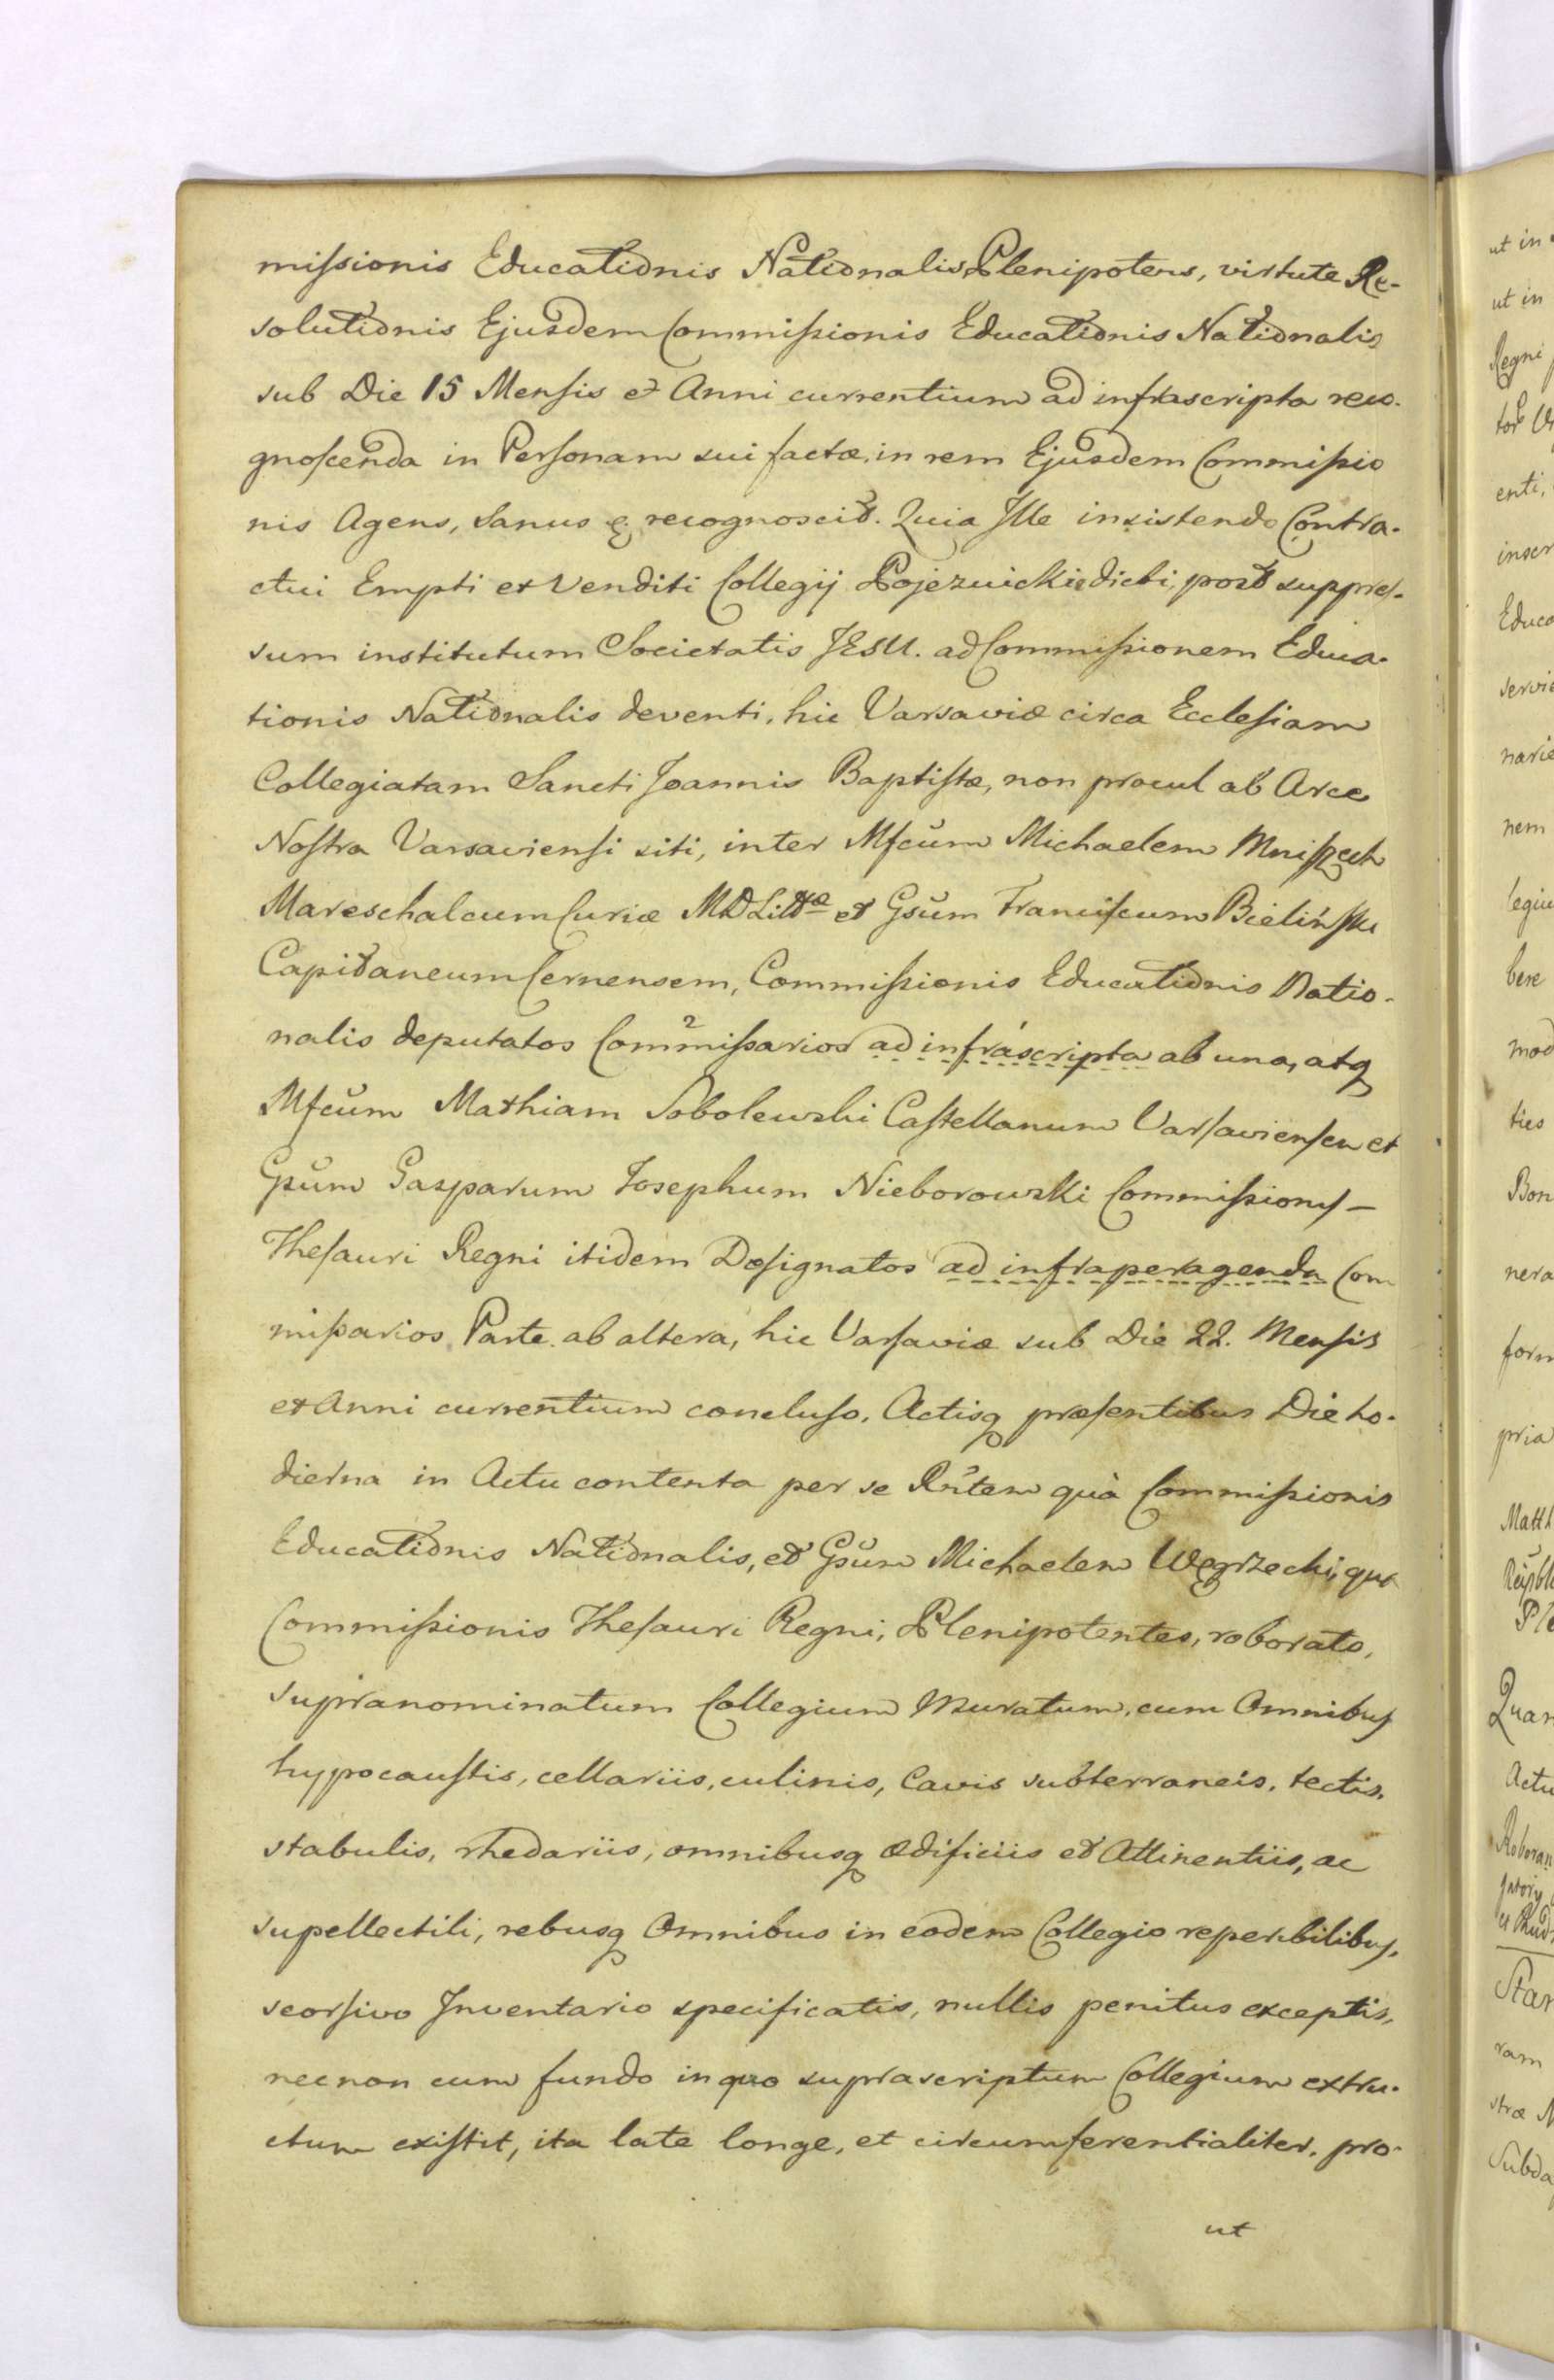 missionis Educationis Nationalis Plenipotens, virtute Re-
solutionis Ejusdem Commissionis Educationis Nationalis
sub Die 15 Mensis et Anni currentium ad infrascripta reco-
gnoscenda in Personam sui factæ, in rem Ejusdem Commissio
nis Agens, Sanus &. recognoscit. Quia Ille insistendo Contra-
ctui Empti et Venditi Collegij Pojezuickie dicti, post suppres-
sum institutum Societatis JESU. ad Commissionem Educa-
tionis Nationalis deventi, hic Varsaviæ circa Ecclesiam
Collegiatam Sancti Joannis Baptistæ, non procul ab Arce
Nostra Varsaviensi siti, inter Mfcum Michaelem Mniszech
Mareschalcum Curiæ MDLittæ et Gsum Franciscum Bieliński
Capitaneum Cernensem, Commissionis Educationis Natio-
nalis deputatos Commissarios ad infrascripta ab una, atq
Mfcum Mathiam Sobolewski Castellanum Varsaviensem et
Gsum Gasparum Josephum Nieborowski Commissionis –
Thesauri Regni itidem Designatos ad infraperagenda Com
missarios Parte ab altera, hic Varsaviæ sub Die 22. Mensis
et Anni currentium concluso, Actisq præsentibus Die ho-
dierna in Actu contenta per se Rntem quà Commissionis
Educationis Nationalis, et Gsum Michaelem Węgrzecki, qua
Commissionis Thesauri Regni, Plenipotentes, roborato,
supranominatum Collegium Muratum, cum Omnibus
hypocaustis, cellariis, culinis, Cavis subterraneis, tectis,
stabulis, rhedariis, omnibusq ædificiis et Attinentiis, ac
supellectili, rebusq Omnibus in eodem Collegio reperibilibus,
seorsivo Inventario specificatis, nullis penitus exceptis,
necnon cum fundo in quo suprascriptum Collegium extru-
ctum existit, ita late longe, et circumferentialiter, pro-
ut